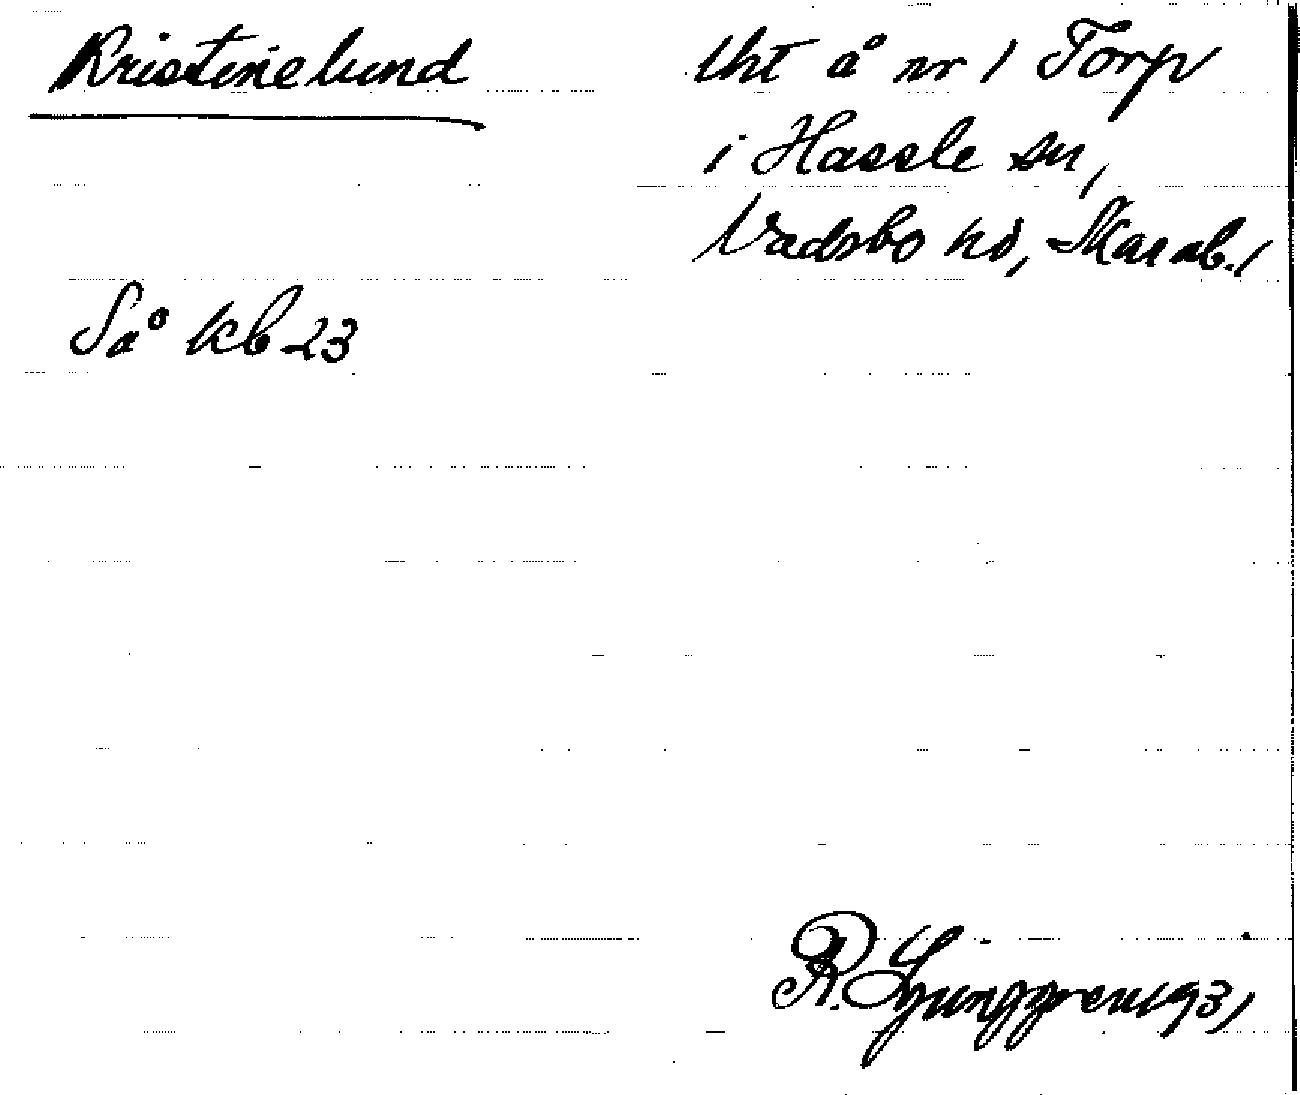 Kristinelund
lht å nr 1 Torp
i Hassle sn,
Vadsbo hd, Skarab. l
Så kb 23
R. Ljunggren 1931